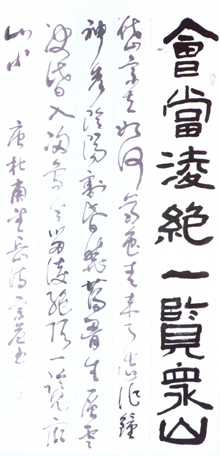 會當淩絕一覽衆山
岱宗夫如何齊魯青未了造化鐘
神秀陰陽割昏曉蕩胸生層雲
決眥入歸鳥會當凌絕頂一覽衆
山小
唐杜甫望岳詩